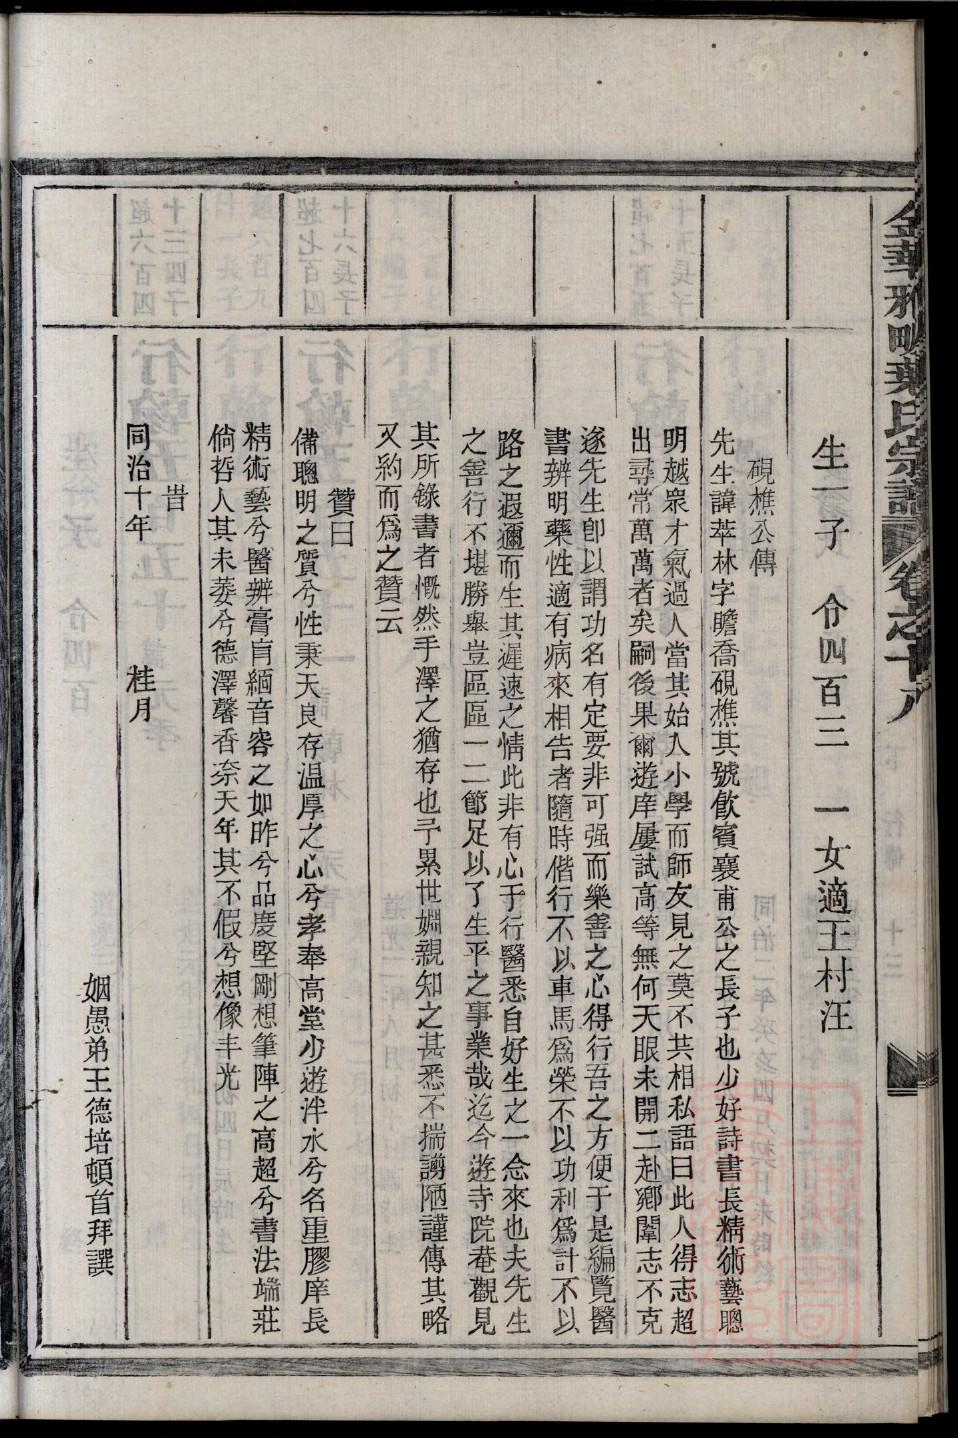 金華雅畈葉氏宗譜 卷之十八
生一子 令四百三 一女適王村汪
硯樵公傳
先生諱萃林字瞻喬硯樵其號飲賓襄甫公之長子也少好詩書長精術藝聰
明越衆才氣過人當其始入小學而師友見之莫不共相私語曰此人得志超
出尋常萬萬者矣嗣後果爾遊庠屢試高等無何天眼未開二赴鄉闈志不克
遂先生卽以謂功名有定要非可强而樂善之心得行吾之方便于是編覽醫
書辨明藥性適有病來相告者隨時偕行不以車馬爲榮不以功利爲計不以
路之遐邇而生其遲速之情此非有心于行醫悉自好生之一念來也夫先生
之善行不堪勝舉豈區區一二節足以了生平之事業哉迄今遊寺院菴觀見
其所錄書者慨然手澤之猶存也予累世婣親知之甚悉不揣譾陋謹傳其略
又約而爲之贊云
贊曰
備聰明之質兮性秉天良存温厚之心兮孝奉高堂少遊泮水兮名重膠庠長
精術藝兮醫辨膏肓緬音容之如昨兮品度堅剛想筆陣之高超兮書法端莊
倘哲人其未萎兮德澤馨香奈天年其不假兮想像丰光
旹
同治十年 桂月
姻愚弟王德培頓首拜譔